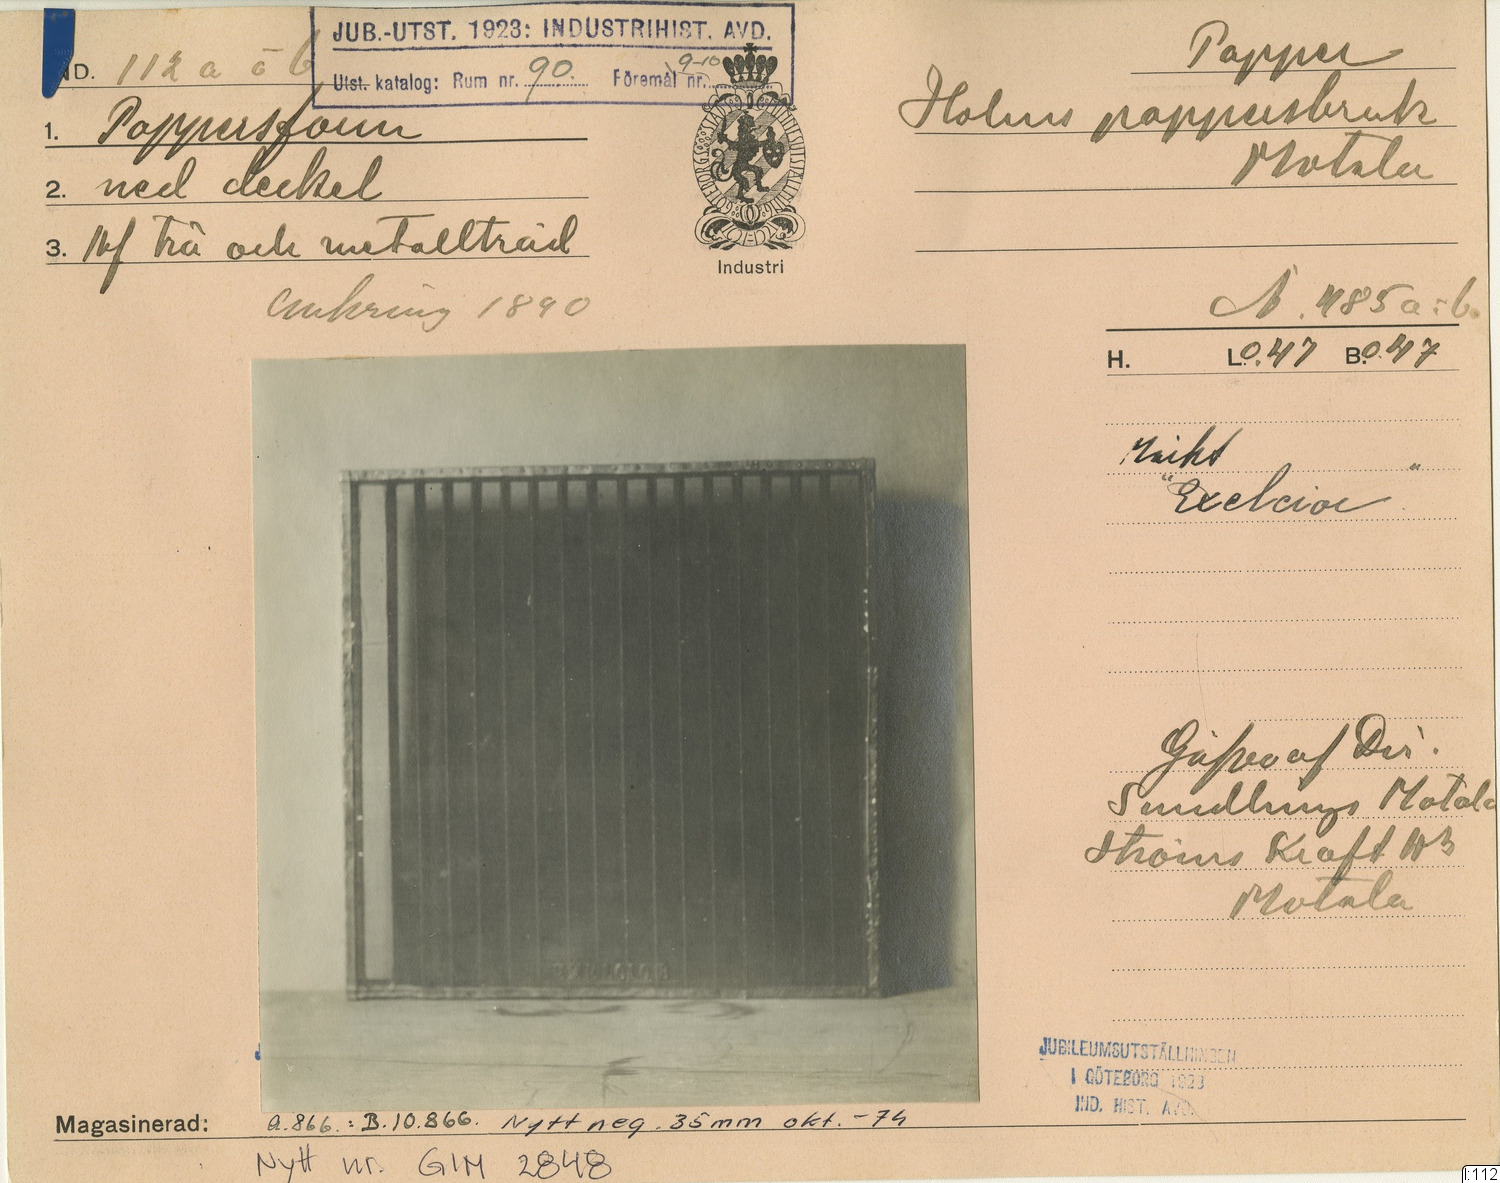 JUB.-UTST. 1923: INDUSTRIHIST. AVD.
Utst. katalog: Rum nr. 90. Föremål nr. 9-10
IND. 112 a o b
1. Pappersform
2. med deckel
3. Af trä och metalltråd
omkring 1890
GÖTEBORGS STADS JUBILEUMSUTSTÄLLNING
Industri
Papper
Holms pappersbruk
Motala
N. 485 a:b.
H. L. 0.47 B. 0.47
Märkt
"Exelcior"
Gåfva af Dir.
Sundlings Motala
Ströms Kraft AB
Motala
EXELCIOR
JUBILEUMSUTSTÄLLNINGEN
I GÖTEBORG 1923
IND. HIST. AVD.
Magasinerad: a.866. : B.10.866. Nytt neg. 35mm okt. -74
Nytt nr. GIM 2848
I:112